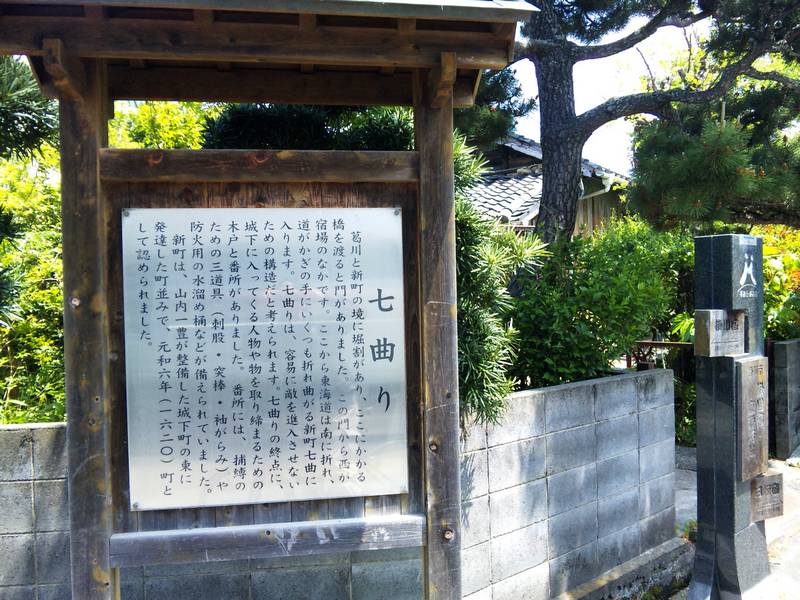 七曲り
葛川と新町の境に堀割があり、ここにかかる
橋を渡ると門がありました。この門から西が
宿場のなかです。ここから東海道は南に折れ、
道がかぎの手にいくつも折れ曲がる新町七曲に
入ります。七曲りは、容易に敵を進入させない
ための構造だと考えられます。七曲りの終点に、
城下に入ってくる人物や物を取り締まるための
木戸と番所がありました。番所には、捕縛の
ための三道具（刺股・突棒・袖がらみ）や
防火用の水溜め桶などが備えられていました。
新町は、山内一豊が整備した城下町の東に
発達した町並みで、元和六年（一六二〇）町と
して認められました。